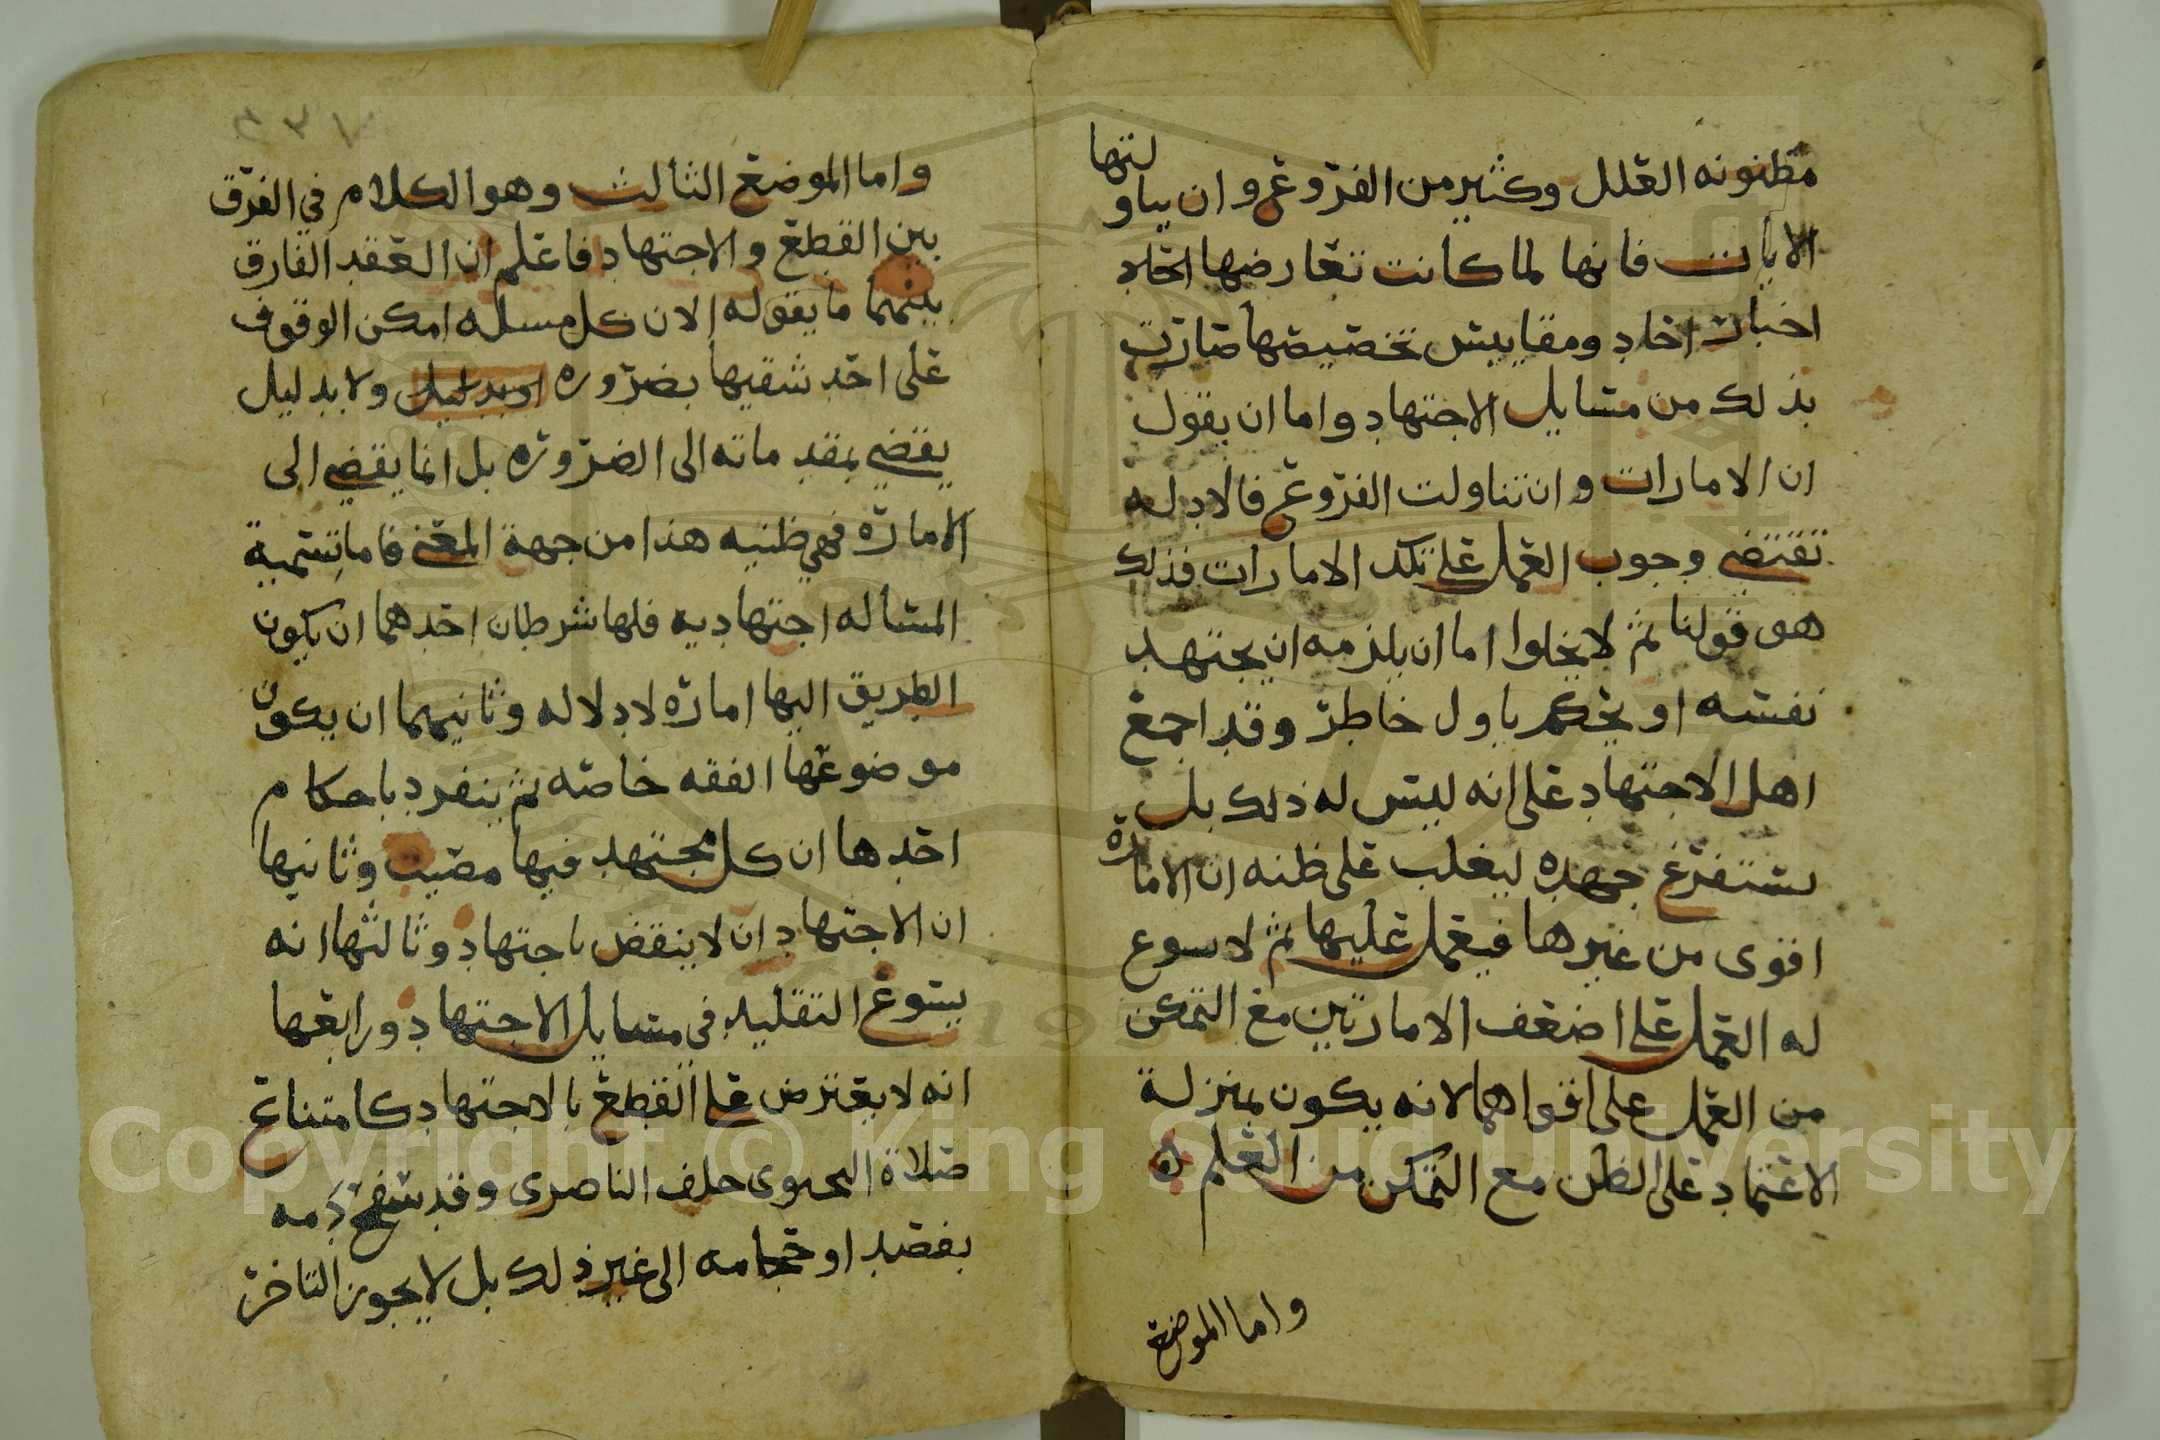 مظنونه العلل وكثير من الفروع وان يناولتها
الايات فانها لما كانت تعارضها احاد
اخبار احاد ومقاييس تخصيصها صارت
بذلك من مسايل الاجتهاد واما ان يقول
ان الامارات وان تناولت الفروع فالادله
تقتضي وجوب العمل على تلك الامارات فذلك
هو قولنا ثم لا يخلوا اما ان يلزمه ان يجتهد
نفسه او يحكم باول خاطر وقد اجمع
اهل الاجتهاد على انه ليس له ذلك بل
يستفرغ جهده ليغلب على ظنه ان الامارة
اقوى من غيرها فيعمل عليها ثم لا يسوع
له العمل على اضعف الامارتين مع التمكن
من العمل على اقواهما لانه يكون بمنزلة
الاعتماد على الظن مع التمكن من العلم ه
واما الموضع
٢٣٧
واما الموضع الثالث وهو الكلام في الفرق
بين القطع والاجتهاد فاعلم ان العقد الفارق
بينهما ما يقوله الان كل مسله امكن الوقوف
على احد شقيها بضروره او بدليل ولا بدليل
يقضي بمقدماته الى الضروره بل انما يقضي الى
الاماره فهي ظنيه هذا من جهة المعنى فاما تسمية
المساله اجتهاديه فلها شرطان احدهما ان يكون
الطريق اليها اماره لا دلاله وثانيهما ان يكون
موضوعها الفقه خاصه ثم ينفرد باحكام
احدها ان كل مجتهد فيها مصيب وثانيها
ان الاجتهاد ان لا ينقض باجتهاد وثالثها انه
يسوع التقليد في مسايل الاجتهاد ورابعها
انه لا يعترض على القطع بالاجتهاد كامتناع
صلاة اليحيوى خلف الناصرى وقد سفح دمه
بفصد او حجامه الى غير ذلك بل لا يجوز التاخر
Copyright © King Saud University